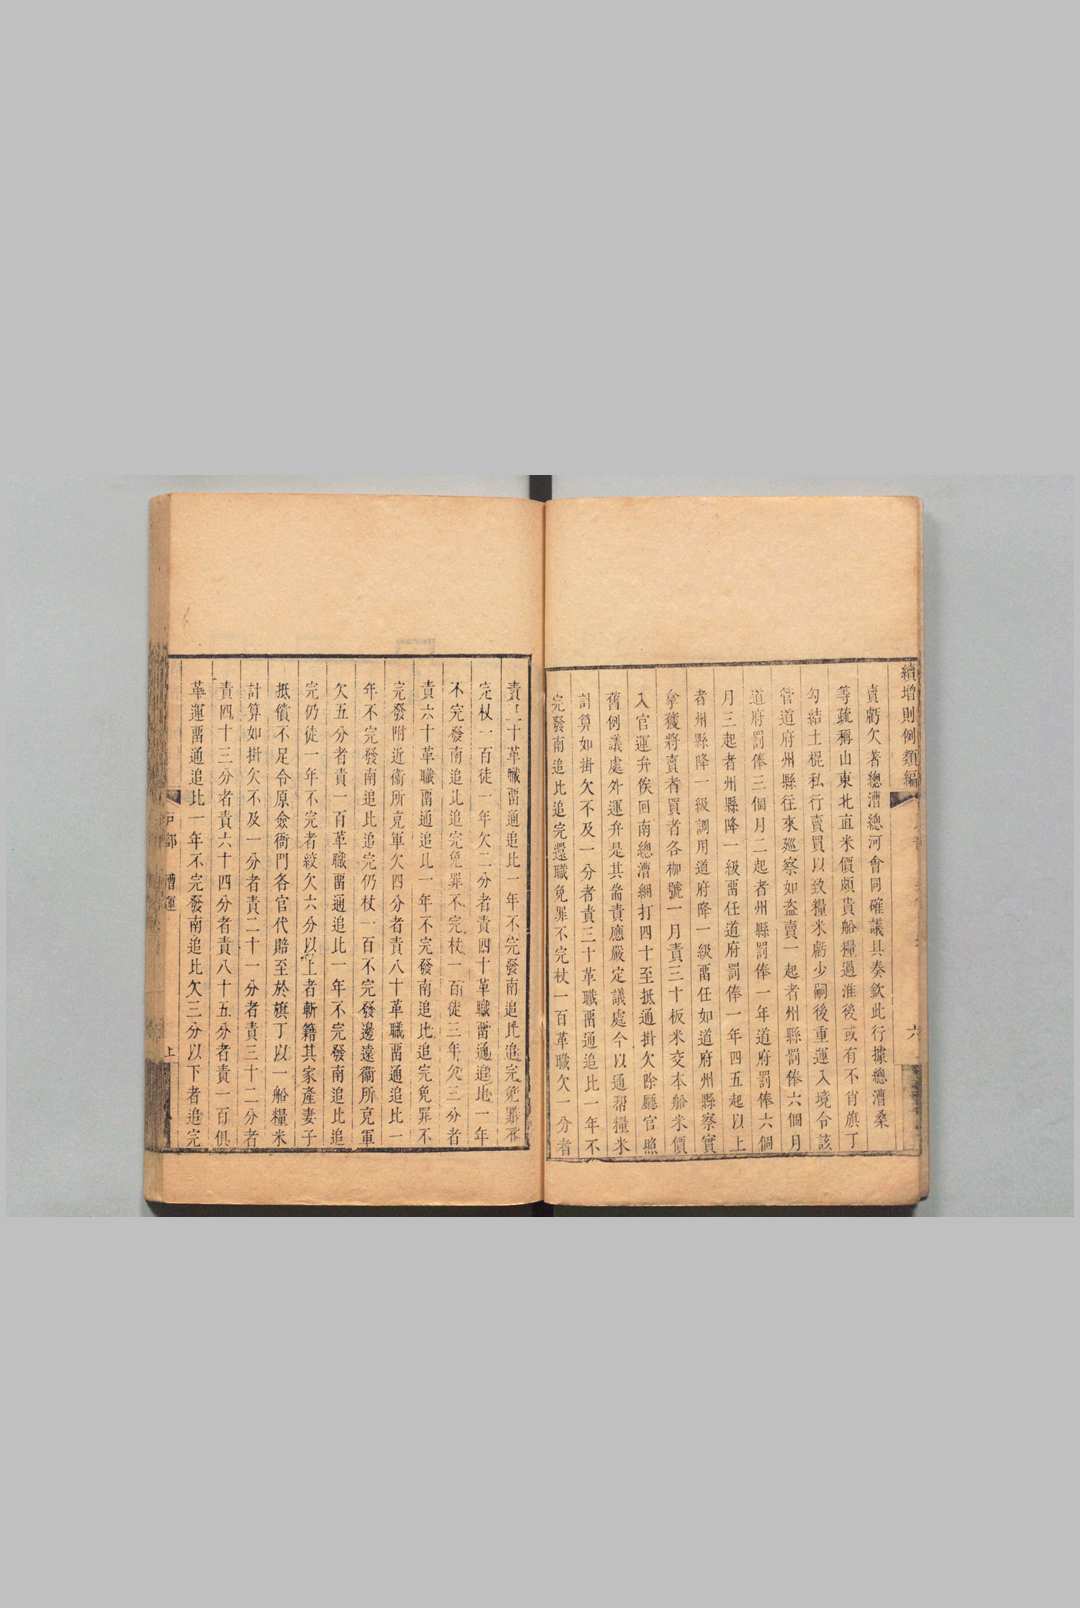 續增則例類編
六
賣虧欠著總漕總河會同確議具奏欽此行據總漕桑
等疏稱山東北直米價頗貴船糧過淮後或有不肖旗丁
勾結土棍私行賣買以致糧米虧少嗣後重運入境令該
管道府州縣往來廵察如盗賣一起者州縣罰俸六個月
道府罰俸三個月二起者州縣罰俸一年道府罰俸六個
月三起者州縣降一級畱任道府罰俸一年四五起以上
者州縣降一級調用道府降一級畱任如道府州縣察實
拿獲將賣者買者各枷號一月責三十板米交本船米價
入官運弁俟回南總漕綑打四十至抵通掛欠除廳官照
舊例議處外運弁是其耑責應嚴定議處今以通幇糧米
計算如掛欠不及一分者責三十革職畱通追比一年不
完發南追比追完還職免罪不完杖一百革職欠一分者
責三十革職畱通追比一年不完發南追比追完免罪不
完杖一百徒一年欠二分者責四十革職畱通追比一年
不完發南追比追完免罪不完杖一百徒三年欠三分者
責六十革職畱通追比一年不完發南追比追完免罪不
完發附近衞所克軍欠四分者責八十革職畱通追比一
年不完發南追比追完仍杖一百不完發邊遠衞所克軍
欠五分者責一百革職畱通追比一年不完發南追比追
完仍徒一年不完者絞欠六分以上者斬籍其家產妻子
抵償不足令原僉衙門各官代賠至於旗丁以一船糧米
計算如掛欠不及一分者責二十一分者責三十二分者
責四十三分者責六十四分者責八十五分者責一百俱
革運畱通追比一年不完發南追比欠三分以下者追完
戸部 漕運 上